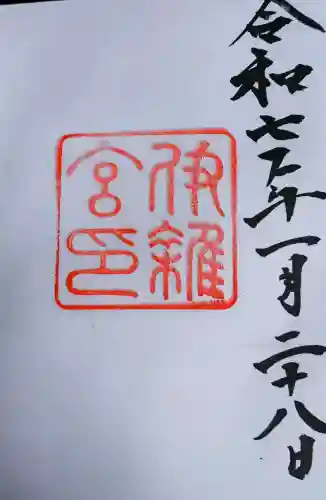 令和七年一月二十八日
伊雑
宮印